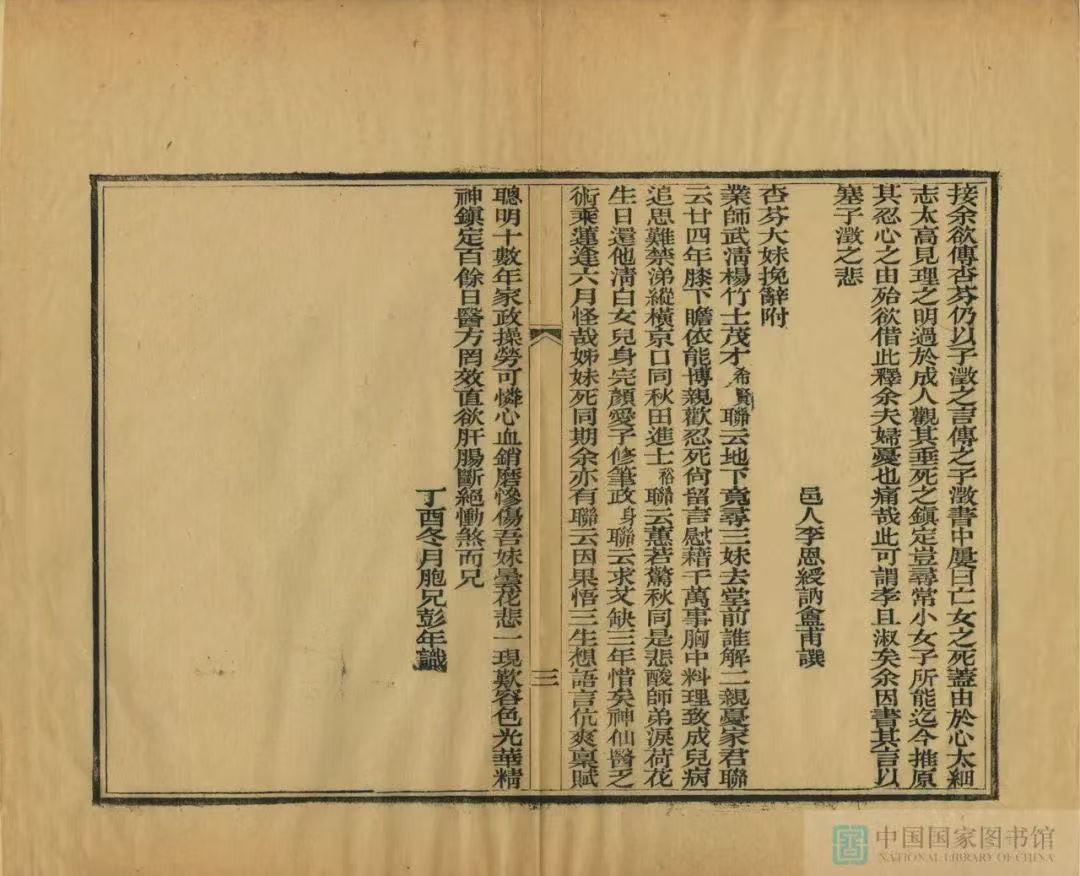 接余欲傳杏芬仍以子澂之言傳之子澂書中屢曰亡女之死蓋由於心太細
志太高見理之明過於成人觀其垂死之鎮定豈尋常小女子所能迄今推原
其忍心之由殆欲借此釋余夫婦憂也痛哉此可謂孝且淑矣余因書其言以
塞子澂之悲
邑人李恩綬訥盦甫譔
杏芬大妹挽辭附
業師武淸楊竹士茂才希賢聯云地下竟尋三妹去堂前誰解二親憂家君聯
云廿四年膝下瞻依能博親歡忍死尙留言慰藉千萬事胸中料理致成兒病
追思難禁涕縱橫京口同秋田進士裕聯云蕙若驚秋同是悲酸師弟淚荷花
生日還他淸白女兒身完顏愛子修筆政身聯云求艾缺三年惜矣神仙醫乏
術乘蓮逢六月怪哉姊妹死同期余亦有聯云因果悟三生想語言伉爽稟賦
三
聰明十數年家政操勞可憐心血銷磨慘傷吾妹曇花悲一現歎容色光華精
神鎮定百餘日醫方罔效直欲肝腸斷絕慟煞而兄
丁酉冬月胞兄彭年識
中国国家图书馆
NATIONAL LIBRARY OF CHINA